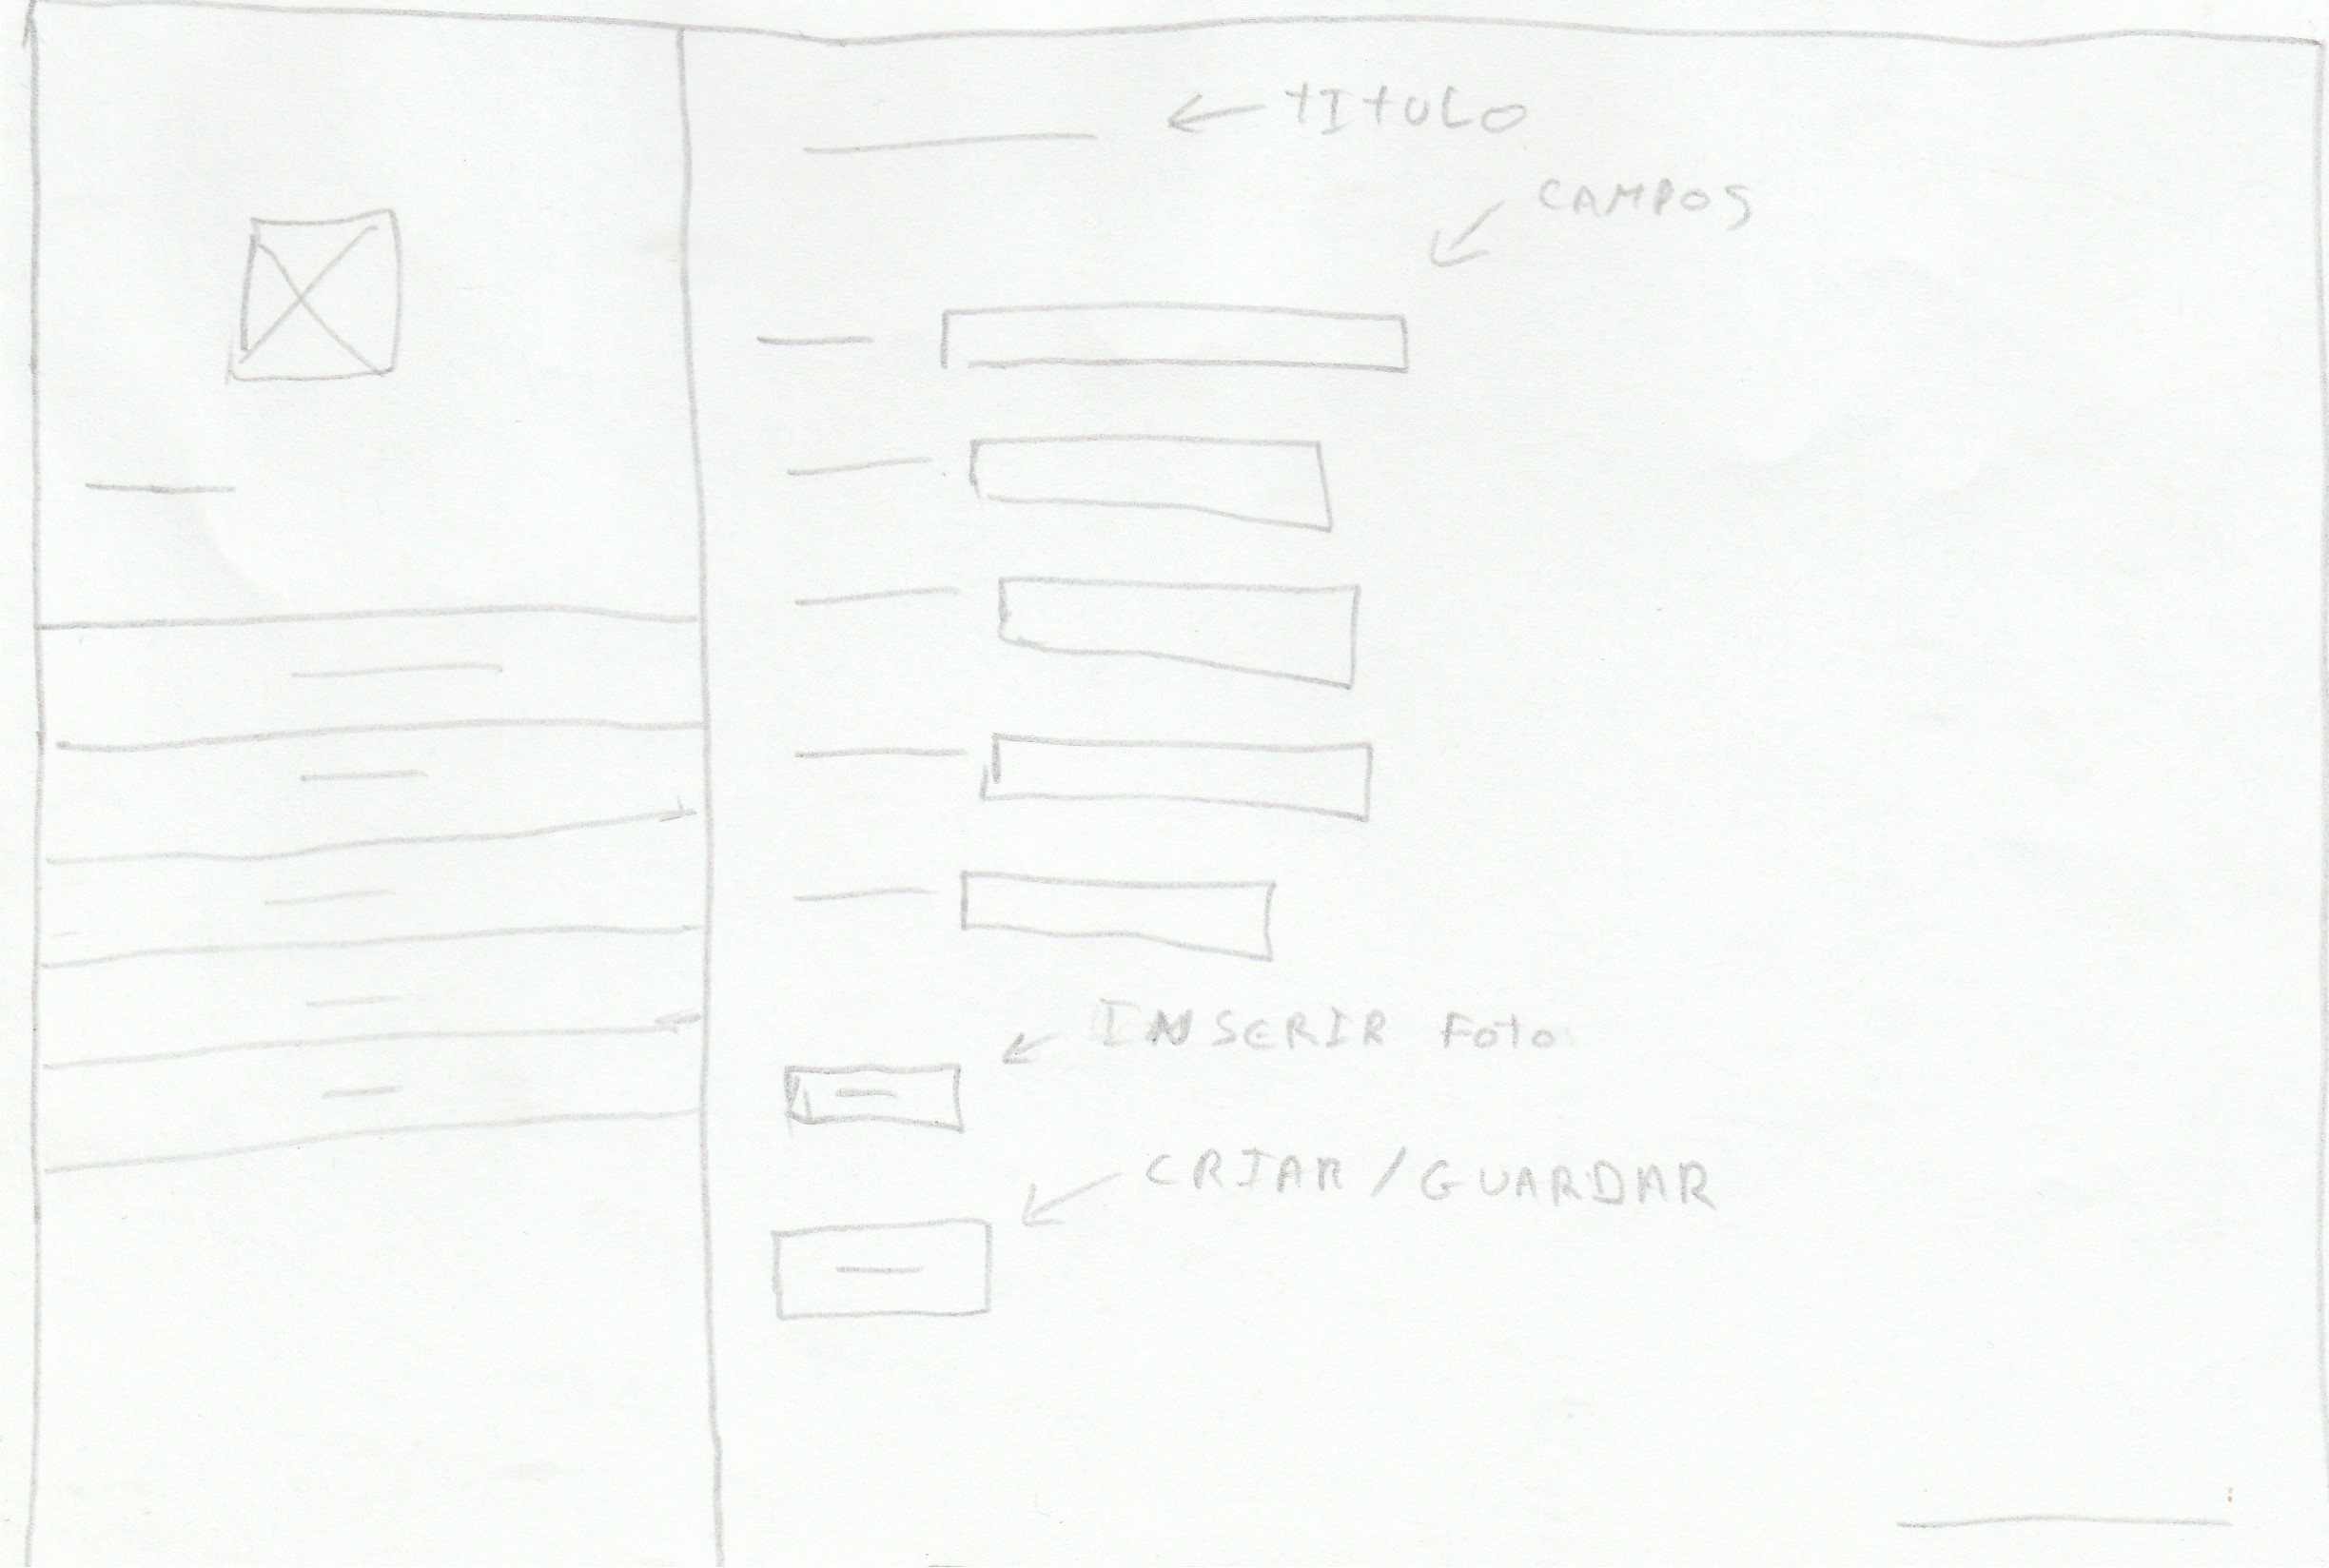 TITULO
CAMPOS
INSERIR Foto
CRIAR/GUARDAR